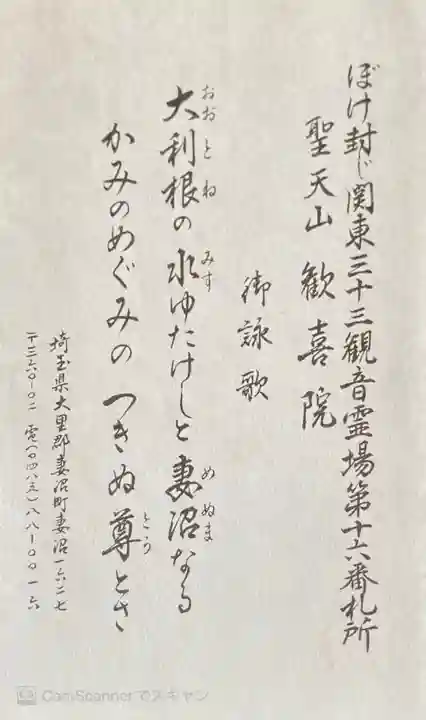 ぼけ封じ関東三十三観音霊場第十六番札所
聖天山 歓喜院
御詠歌
大利根の水ゆたけしと妻沼なる
おおとね みす めぬま
かみのめぐみの つきぬ尊とさ
とう
埼玉県大里郡妻沼町妻沼一六二七
〒三六〇-〇二 電(〇四八五)八八-〇〇一六
CamScannerでスキャン